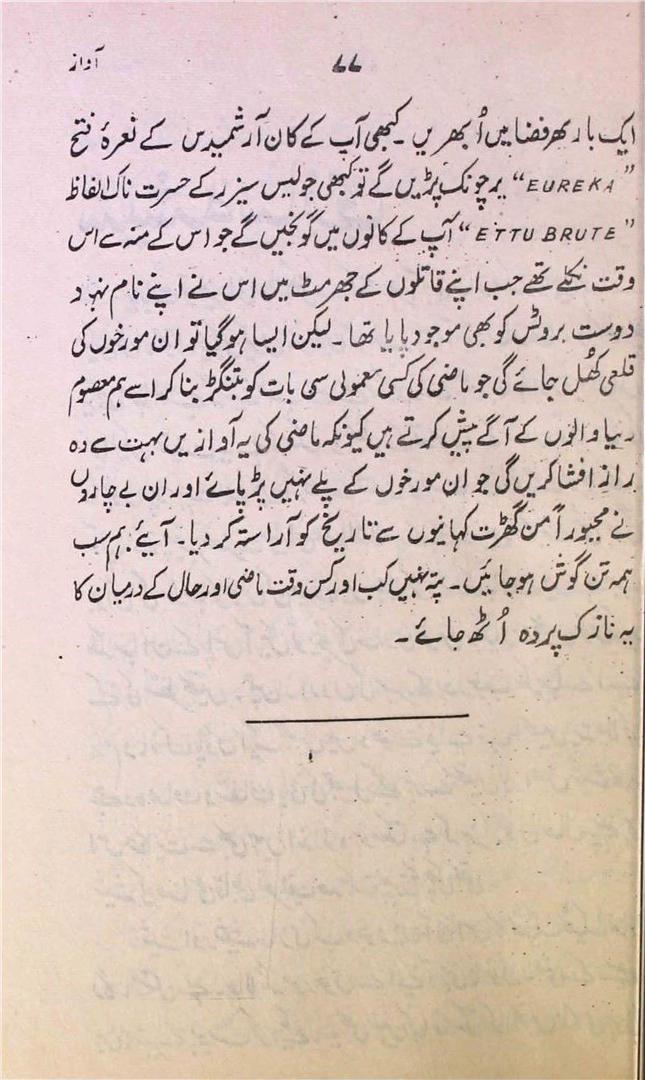 آواز
۷۷
ایک بار پھر فضا میں اُبھریں۔ کبھی آپ کے کان آرشمیدس کے نعرۂ فتح
"EUREKA" پر چونک پڑیں گے تو کبھی جولیس سیزر کے حسرت ناک الفاظ
"ETTU BRUTE" آپ کے کانوں میں گونجیں گے جو اس کے منہ سے اس
وقت نکلے تھے جب اپنے قاتلوں کے جھرمٹ میں اس نے اپنے نام نہاد
دوست بروٹس کو بھی موجود پایا تھا۔ لیکن ایسا ہو گیا تو ان مورخوں کی
قلعی کھُل جائے گی جو ماضی کی کسی معمولی سی بات کو بتنگڑ بنا کر اسے ہم معصوم
دنیا والوں کے آگے پیش کرتے ہیں کیونکہ ماضی کی یہ آوازیں بہت سے وہ
راز افشا کریں گی جو ان مورخوں کے پلے نہیں پڑ پائے اور ان بے چاروں
نے مجبوراً من گھڑت کہانیوں سے تاریخ کو آراستہ کر دیا۔ آئیے ہم سب
ہمہ تن گوش ہو جائیں۔ پتہ نہیں کب اور کس وقت ماضی اور حال کے درمیان کا
یہ نازک پردہ اُٹھ جائے۔